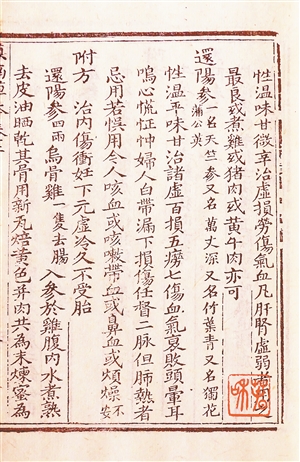 性温味甘微辛治虚損勞傷氣血凡肝腎虚弱者
最良或煮雞或猪肉或黄牛肉亦可
還陽參一名天竺参又名萬丈深又名竹葉青又名獨花蒲公英
性温平味甘治諸虚百損五癆七傷血氣衰敗頭暈耳
鳴心慌怔忡婦人白帶漏下損傷任督二脉但肺熱者
忌用若悮用令人咳血或咳嗽帶血或鼻血或煩燥不安
附方 治内傷衝妊下元虚冷久不受胎
還陽參四兩烏骨雞一隻去腸 入參於雞腹内水煮熟
去皮油晒乾其骨用新瓦焙黄色并肉共為末煉蜜為